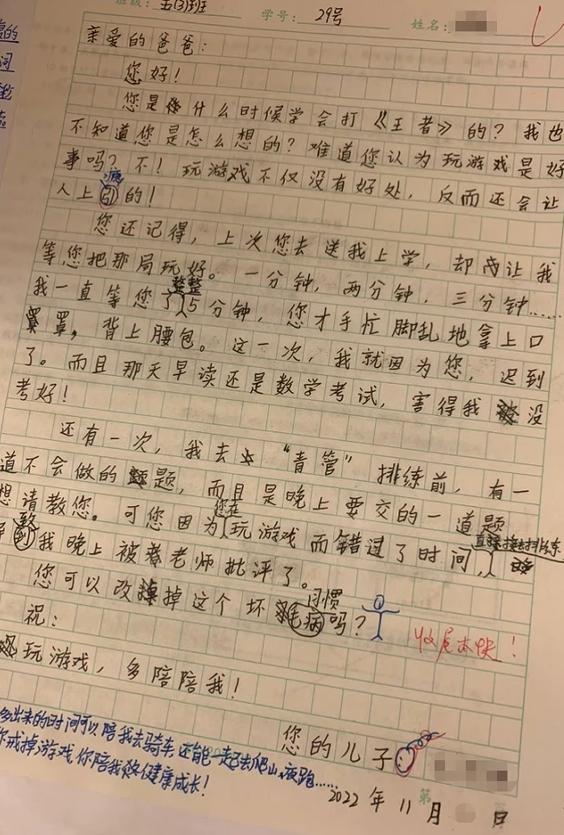 班级：五(3)班 学号：29号 姓名：
亲爱的爸爸：
您好！
您是什么时候学会打《王者》的？我也
不知道您是怎么想的？难道您认为玩游戏是好
事吗？不！玩游戏不仅没有好处，反而还会让
人上瘾的！
您还记得，上次您去送我上学，却让我
等您把那局玩好。一分钟，两分钟，三分钟……
我一直等您了整整15分钟，您才手忙脚乱地拿上口
罩，背上腰包。这一次，我就因为您，迟到
了。而且那天早读还是数学考试，害得我没
考好！
还有一次，我去“青管”排练前，有一
道不会做的题，而且是晚上要交的一道题
想请教您。可您因为您在玩游戏而错过了时间，
我晚上被老师批评了。
您可以改掉这个坏习惯吗？
收尾太快！
祝：
玩游戏，多陪陪我！
多出来的时间可以陪我去骑车还能一起去爬山、夜跑……
戒掉游戏，你陪我健康成长！
您的儿子：
2022年11月 日